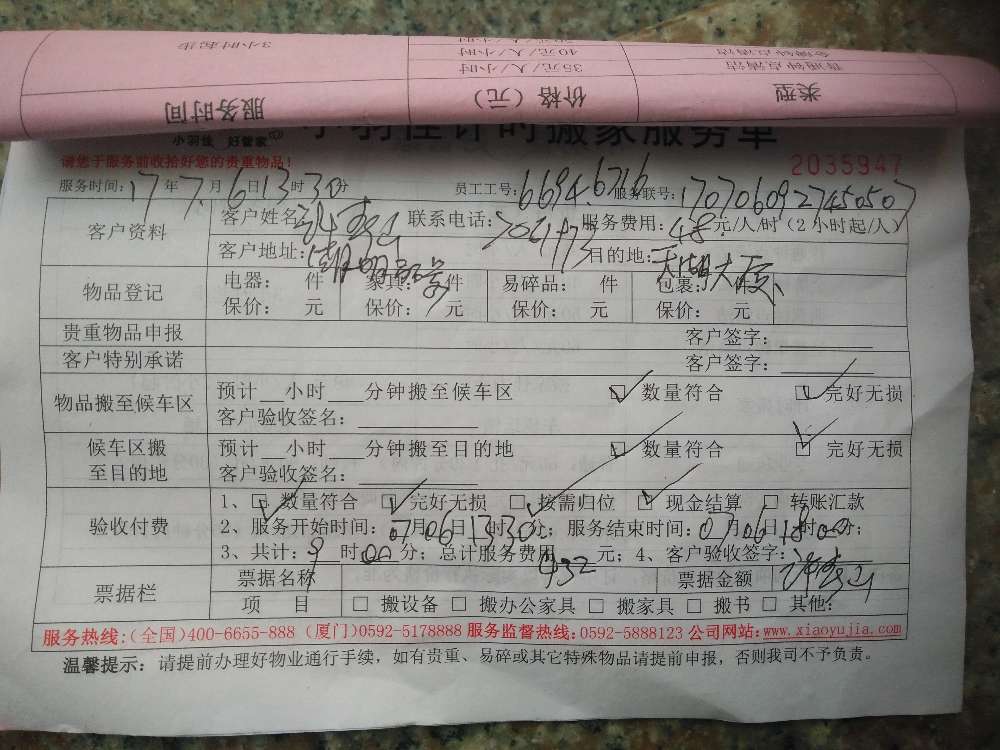 3小时起步
40元/人/小时
35元/人/小时
普通钟点清洁
服务时间
价格（元）
类型
小羽佳 好管家
小羽佳计时搬家服务单
请您于服务前收拾好您的贵重物品！
2035947
服务时间：17年7月6日13时30分 员工工号：6694.6716 服务联号：1707060927450507
客户资料 客户姓名 联系电话： 服务费用：48元/人/时（2小时起/人）
客户地址： 目的地：天湖大厦
物品登记 电器： 件 家具： 件 易碎品： 件 包裹： 件
保价： 元 保价： 元 保价： 元 保价： 元
贵重物品申报 客户签字：
客户特别承诺 客户签字：
物品搬至候车区 预计__小时___分钟搬至候车区 数量符合 完好无损
客户验收签名：
候车区搬至目的地 预计__小时___分钟搬至目的地 数量符合 完好无损
客户验收签名：
验收付费 1、 数量符合 完好无损 按需归位 现金结算 转账汇款
2、服务开始时间：07月06日13时30分；服务结束时间：07月06日18时00分；
3、共计：9时00分；总计服务费用432元；4、客户验收签字：
票据栏 票据名称 票据金额
项 目 □ 搬设备 □ 搬办公家具 □ 搬家具 □ 搬书 □ 其他：
服务热线：（全国）400-6655-888（厦门）0592-5178888 服务监督热线：0592-5888123 公司网站：www.xiaoyujia.com
温馨提示：请提前办理好物业通行手续，如有贵重、易碎或其它特殊物品请提前申报，否则我司不予负责。